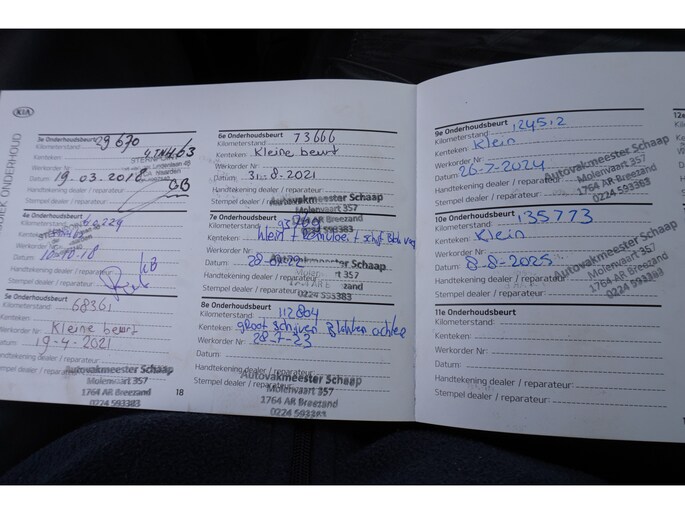 KIA
ONDERHOUD
3e Onderhoudsbeurt
Kilometerstand: 29670
Kenteken:
Werkorder Nr.
Datum: 19.03.2018
Handtekening dealer / reparateur:
Stempel dealer / reparateur:
4e Onderhoudsbeurt
Kilometerstand:
Kenteken:
Werkorder Nr.
Datum:
Handtekening dealer / reparateur:
Stempel dealer / reparateur:
5e Onderhoudsbeurt
Kilometerstand: 68361
Kenteken:
Werkorder Nr: Kleine beurt
Datum: 19-4-2021
Handtekening dealer / reparateur:
Stempel dealer / reparateur:
Autovakmeester Schaap
Molenvaart 357
1764 AR Breezand
0224 593383
18
6e Onderhoudsbeurt
Kilometerstand: 73666
Kenteken: Kleine beurt
Werkorder Nr:
Datum: 31-8-2021
Handtekening dealer / reparateur:
Stempel dealer / reparateur:
Autovakmeester Schaap
Molenvaart 357
1764 AR Breezand
0224 593383
7e Onderhoudsbeurt
Kilometerstand:
Kenteken: klein + remvloei + schijf Blok
Werkorder Nr:
Datum:
Handtekening dealer / reparateur:
Stempel dealer / reparateur:
Schaap
0224 593383
8e Onderhoudsbeurt
Kilometerstand: 112804
Kenteken: groot schijven Blokken achter
Werkorder Nr: 28-7-23
Datum:
Handtekening dealer / reparateur:
Stempel dealer / reparateur:
Autovakmeester Schaap
Molenvaart 357
1764 AR Breezand
0224 593383
9e Onderhoudsbeurt
Kilometerstand: 124512
Kenteken: Klein
Werkorder Nr:
Datum: 26-7-2024
Handtekening dealer / reparateur:
Stempel dealer / reparateur:
Autovakmeester Schaap
Molenvaart 357
1764 AR Breezand
0224 593383
10e Onderhoudsbeurt
Kilometerstand: 135773
Kenteken: Klein
Werkorder Nr:
Datum: 8-8-2025
Handtekening dealer / reparateur:
Stempel dealer / reparateur:
Autovakmeester Schaap
Molenvaart 357
1764 AR Breezand
0224 593383
11e Onderhoudsbeurt
Kilometerstand:
Kenteken:
Werkorder Nr:
Datum:
Handtekening dealer / reparateur:
Stempel dealer / reparateur: